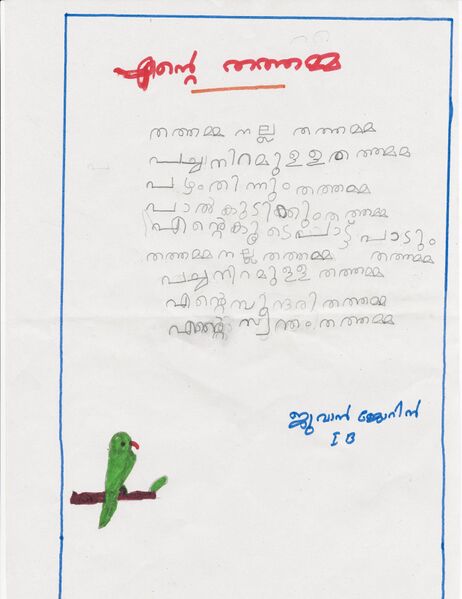 എന്റെ തത്തമ്മ
തത്തമ്മ നല്ല തത്തമ്മ
പച്ചനിറമുള്ള തത്തമ്മ
പഴംതിന്നും തത്തമ്മ
പാൽകുടിക്കും തത്തമ്മ
എന്റെകൂടെപാട്ട് പാടും
തത്തമ്മ നല്ല തത്തമ്മ തത്തമ്മ
പച്ചനിറമുള്ള തത്തമ്മ
എന്റെസുന്ദരി തത്തമ്മ
എന്റെ സ്വന്തം തത്തമ്മ
ജുവാൻ ജെറിൻ
I B